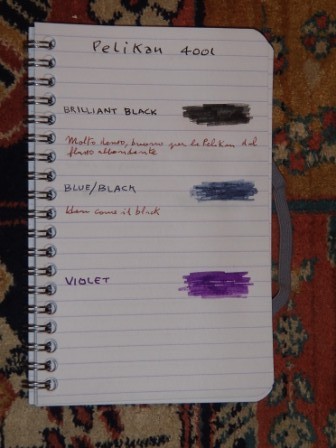 Pelikan 4001
BRILLIANT BLACK
Molto denso, buono per le Pelikan dal
flusso abbondante
BLUE/BLACK
come il black
VIOLET